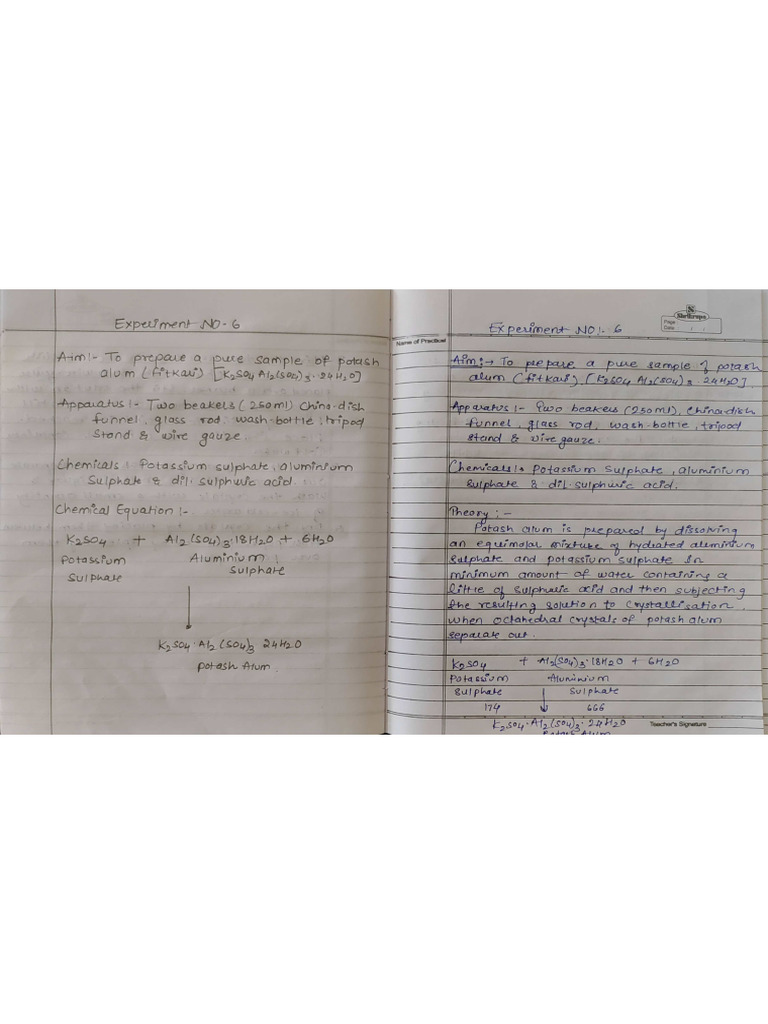 Experiment NO-6
Aim:- To prepare a pure sample of potash
alum (fitkari) [K₂SO₄ Al₂(SO₄)₃·24H₂O]
Apparatus:- Two beakers (250ml) China-dish
funnel, glass rod, wash-bottle, tripod
stand & wire gauze.
Chemicals: Potassium sulphate, aluminium
Sulphate & dil. sulphuric acid.
Chemical Equation:-
K₂SO₄ + Al₂(SO₄)₃·18H₂O + 6H₂O
Potassium Aluminium
Sulphate Sulphate
K₂SO₄·Al₂(SO₄)₃ 24H₂O
Potash Alum.
Experiment NO:- 6
N
Shethsons
Page:
Date: / /
Name of Practical
Aim:→ To prepare a pure sample of potash
alum (fitkari), [K₂SO₄ Al₂(SO₄)₃ 24H₂O].
Apparatus:- Two beakers (250ml), China-dish
funnel, glass rod, wash-bottle, tripod
stand & wire gauze.
Chemicals:- Potassium Sulphate, aluminium
Sulphate & dil. sulphuric acid.
Theory:-
Potash alum is prepared by dissolving
an equimolar mixture of hydrated aluminium
sulphate and potassium sulphate in
minimum amount of water containing a
little of Sulphuric acid and then subjecting
the resulting solution to crystallisation,
when octahedral crystals of potash alum
separate out.
K₂SO₄ + Al₂(SO₄)₃·18H₂O + 6H₂O
Potassium Aluminium
Sulphate Sulphate
174 666
K₂SO₄·Al₂(SO₄)₃·24H₂O
Potash Alum
Teacher's Signature